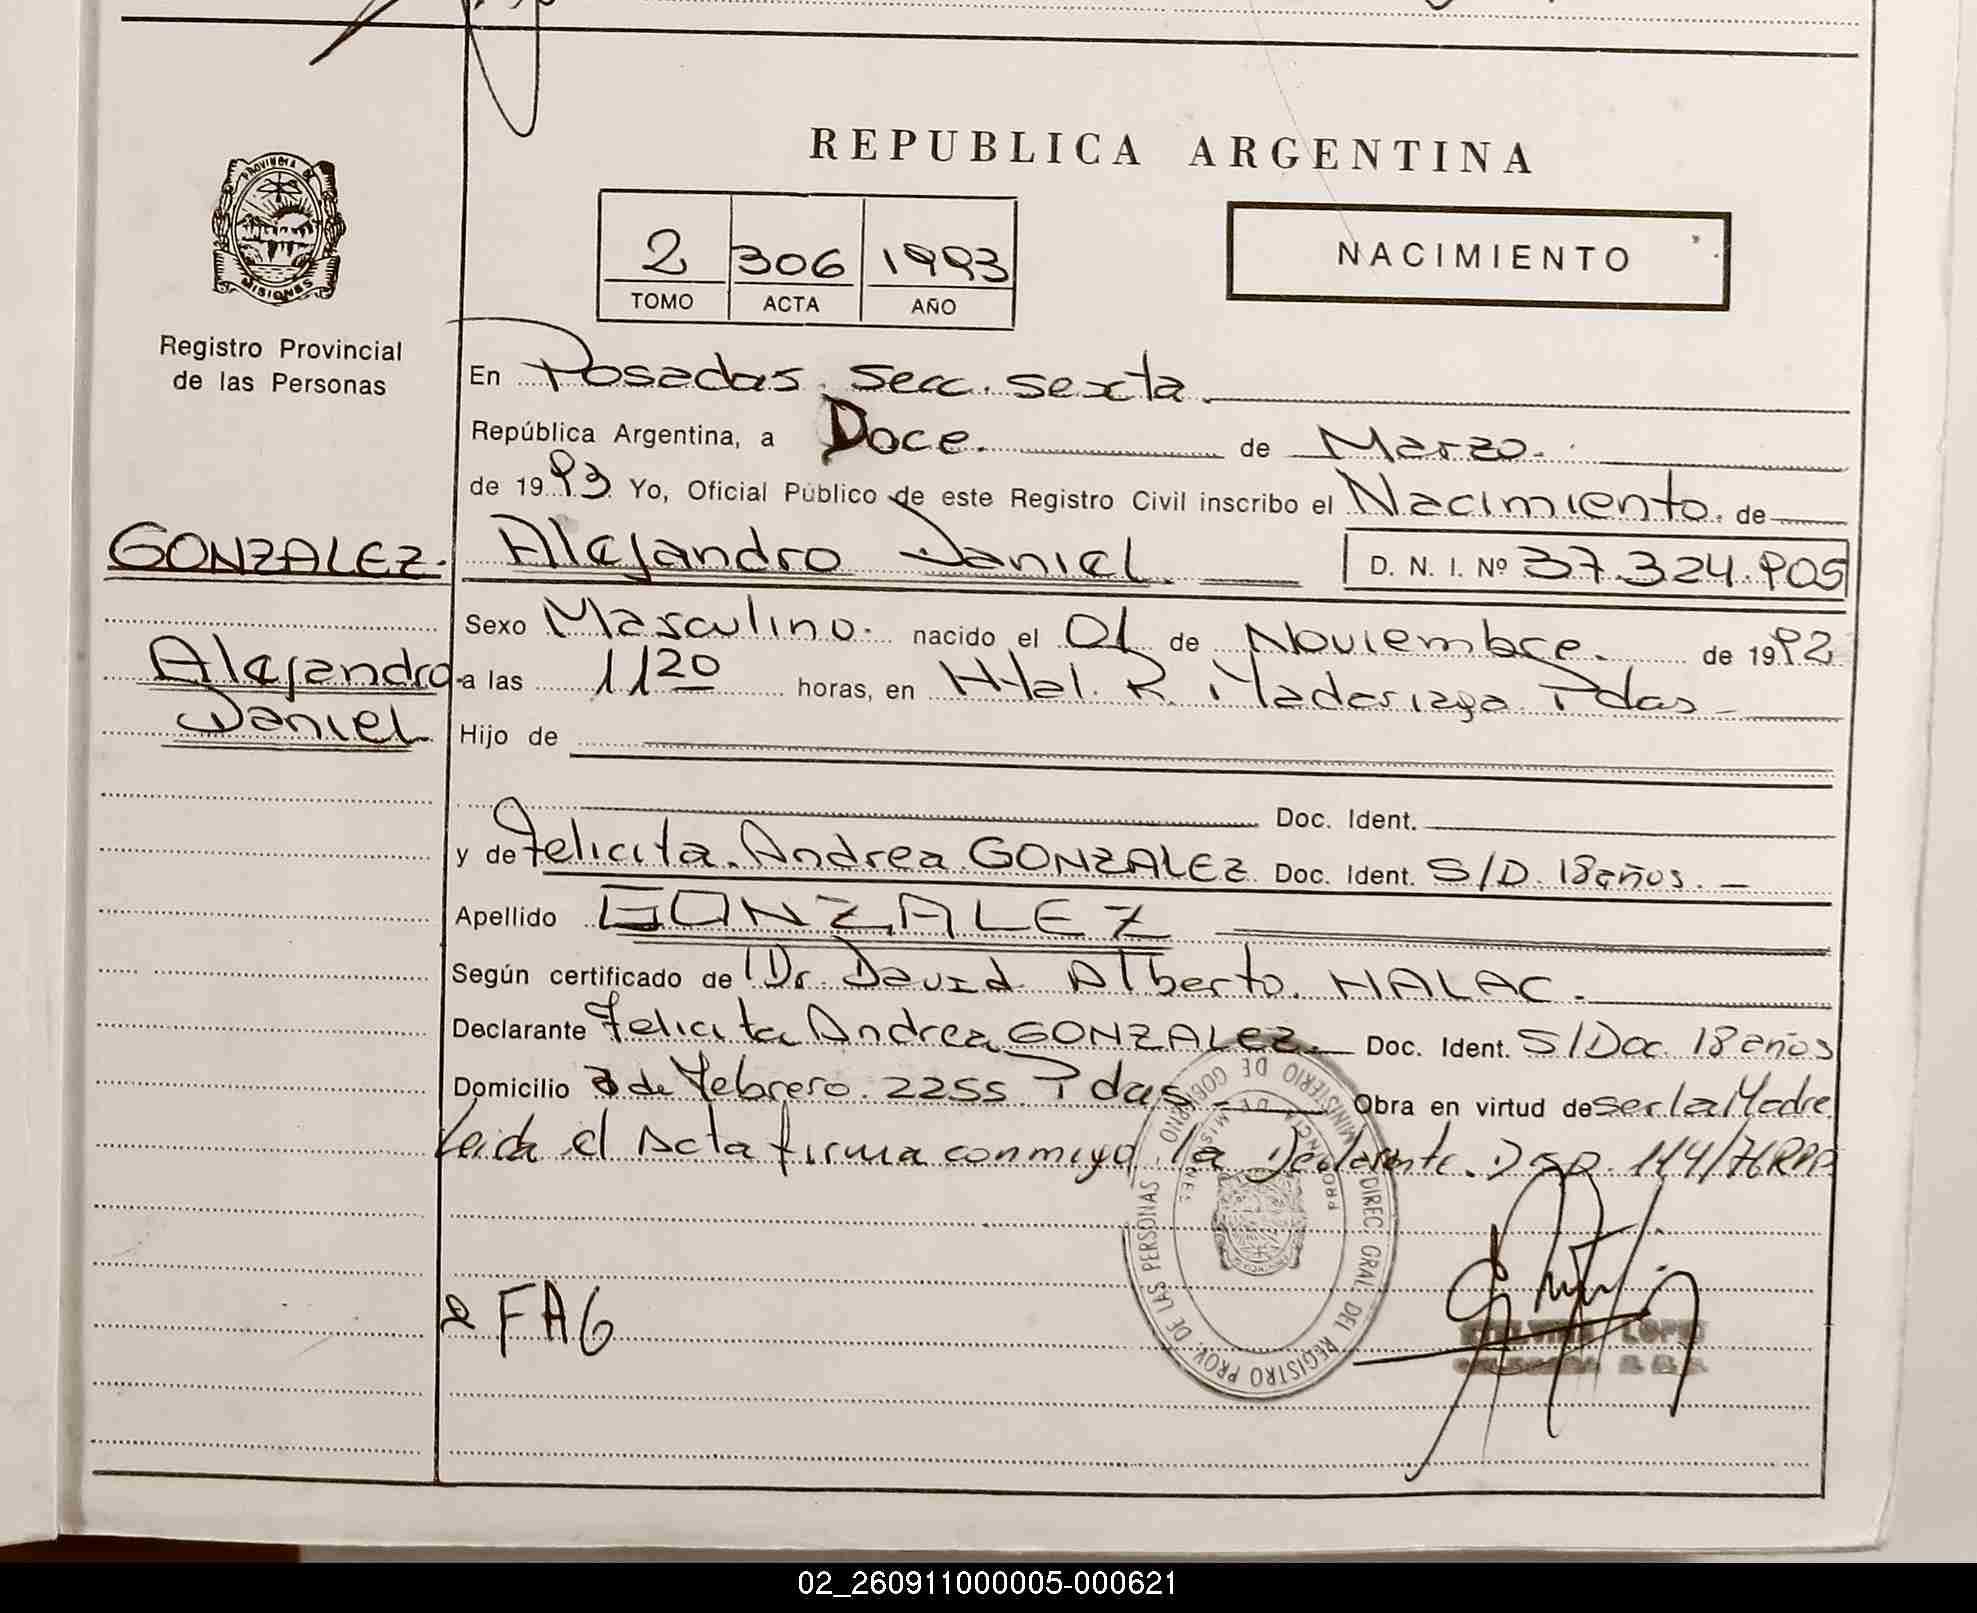 REPUBLICA ARGENTINA
PROVINCIA DE
MISIONES
Registro Provincial
de las Personas
2 306 1993
TOMO ACTA AÑO
NACIMIENTO
En Posadas. Secc. Sexta.
República Argentina, a Doce. de Marzo.
de 1993. Yo, Oficial Público de este Registro Civil inscribo el Nacimiento. de
GONZALEZ. Alejandro Daniel. D. N. I. Nº 37.324.905
Sexo Masculino. nacido el 01 de Noviembre. de 1992
Alejandro a las 1120 horas, en Htal. R. Madariaga Pdas
Daniel Hijo de
Doc. Ident.
y de Felicita. Andrea GONZALEZ Doc. Ident. S/D. 18 años.
Apellido GONZALEZ
Según certificado de Dr. David Alberto. HALAC.
Declarante Felicita Andrea GONZALEZ. Doc. Ident. S/Doc. 18 años
Domicilio 3 de Febrero. 2255 Pdas Obra en virtud de ser la Madre
Leida el Acta firma conmigo la Declarante. Dsp. 114/76RPP
MINISTERIO DE GOBIERNO
PROVINCIA DE MISIONES
DIREC. GRAL. DEL REGISTRO PROV. DE LAS PERSONAS
FAG
LOPEZ
02_260911000005-000621